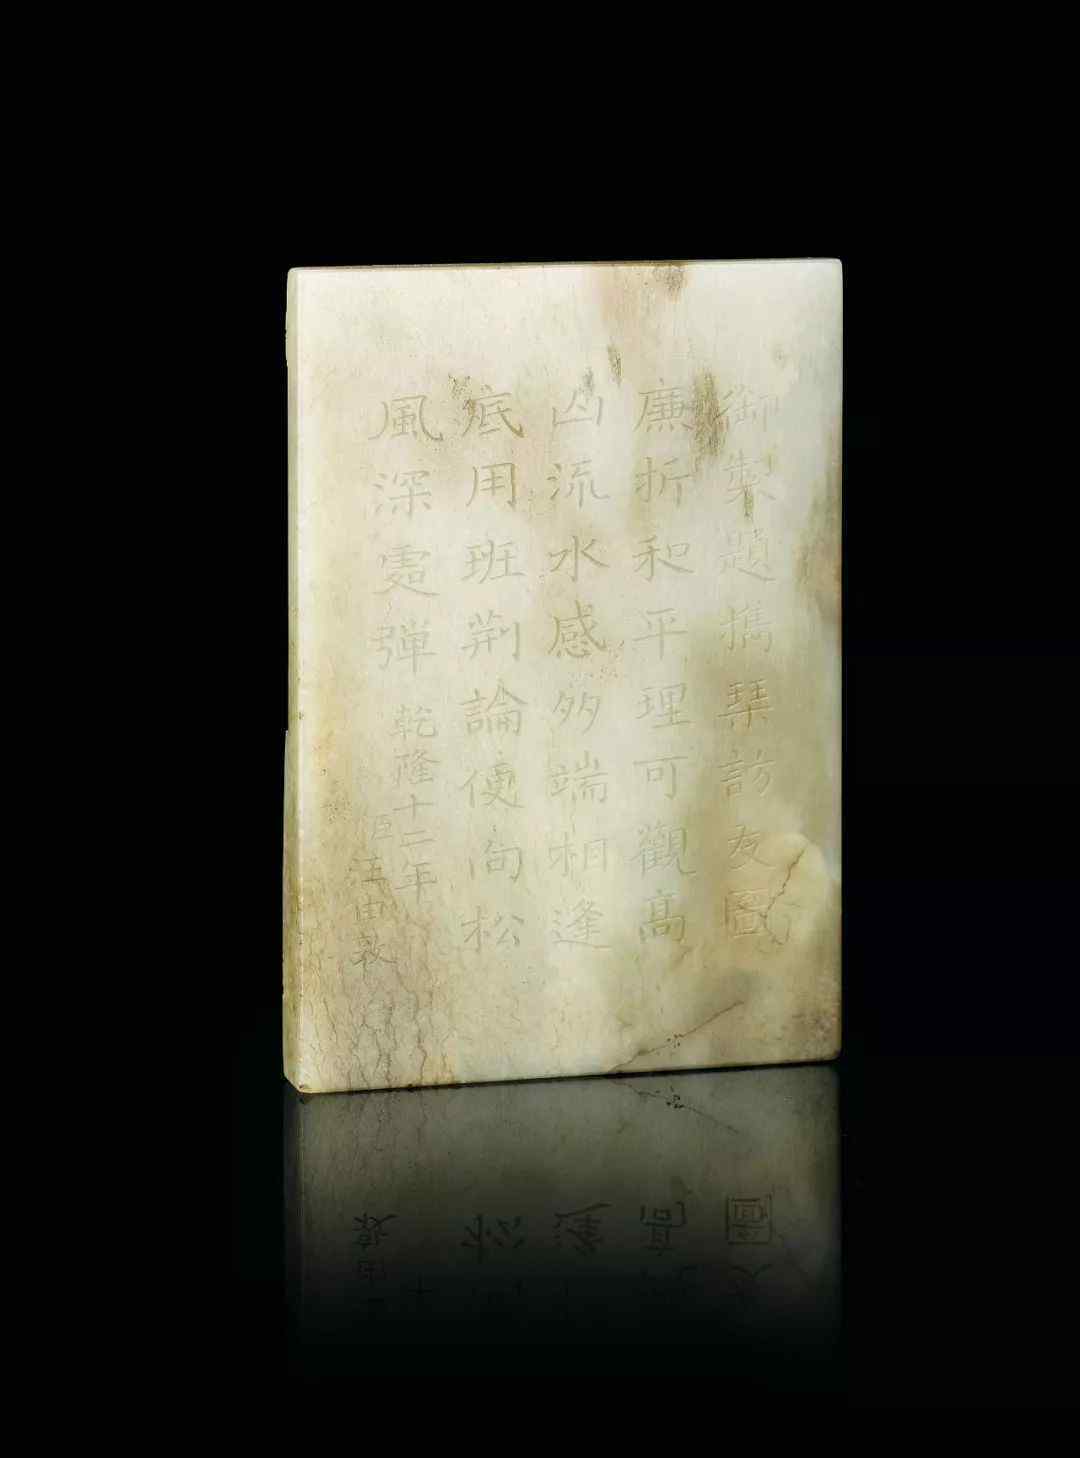 御製題携琹訪友圖
廉折和平理可觀高
山流水感多端相逢
底用班荆論便向松
風深䖏彈
乾隆十二年
臣汪由敦